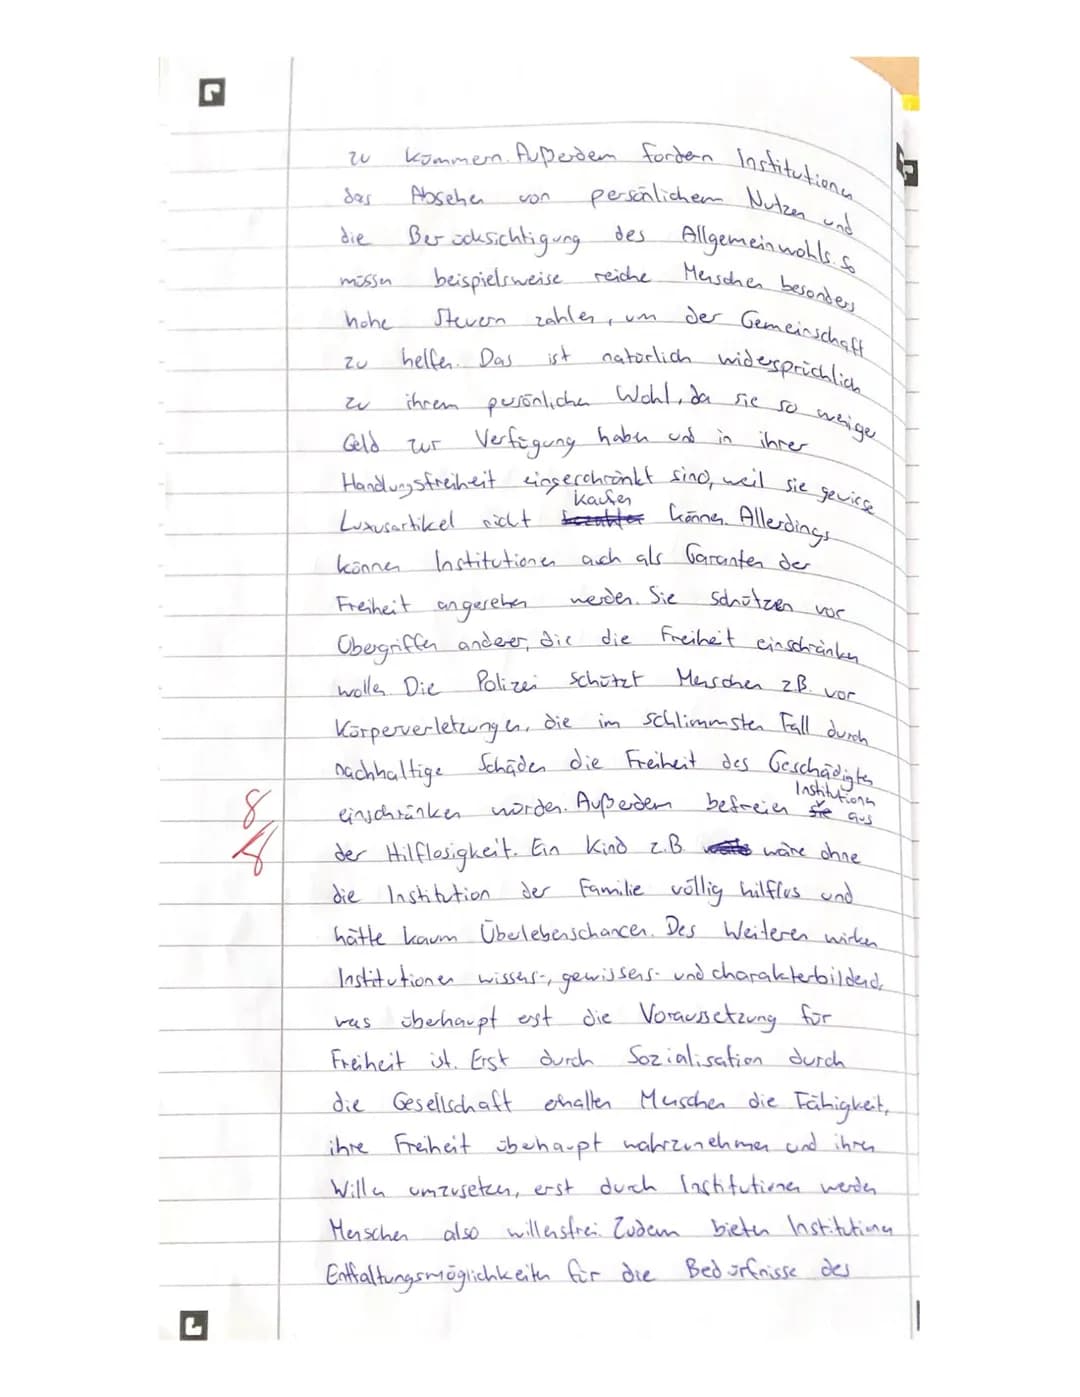 zu kümmern. Außerdem fordern Institutionen
das Absehen von persönlichem Nutzen und
die Berücksichtigung des Allgemeinwohls. So
müssen beispielsweise reiche Menschen besonders
hohe Steuern zahlen, um der Gemeinschaft
zu helfen. Das ist natürlich widersprüchlich
zu ihrem persönlichen Wohl, da sie so weniger
Geld zur Verfügung haben und in ihrer
Handlungsfreiheit eingeschränkt sind, weil sie gewisse
kaufen
Luxusartikel nicht bezahlen können. Allerdings
können Institutionen auch als Garanten der
Freiheit angesehen werden. Sie schützen vor
Übergriffen anderer, die die Freiheit einschränken
wollen. Die Polizei schützt Menschen z.B. vor
Körperverletzungen, die im schlimmsten Fall durch
nachhaltige Schäden die Freiheit des Geschädigten
Institutionen
einschränken würden. Außerdem befreien sie aus
8
der Hilflosigkeit. Ein Kind z.B. wäre ohne
8
die Institution der Familie völlig hilflos und
hätte kaum Überlebenschancen. Des Weiteren wirken
Institutionen wissens-, gewissens- und charakterbildend,
was überhaupt erst die Voraussetzung für
Freiheit ist. Erst durch Sozialisation durch
die Gesellschaft erhalten Menschen die Fähigkeit,
ihre Freiheit überhaupt wahrzunehmen und ihren
Willen umzusetzen, erst durch Institutionen werden
Menschen also willensfrei. Zudem bieten Institutionen
Entfaltungsmöglichkeiten für die Bedürfnisse des